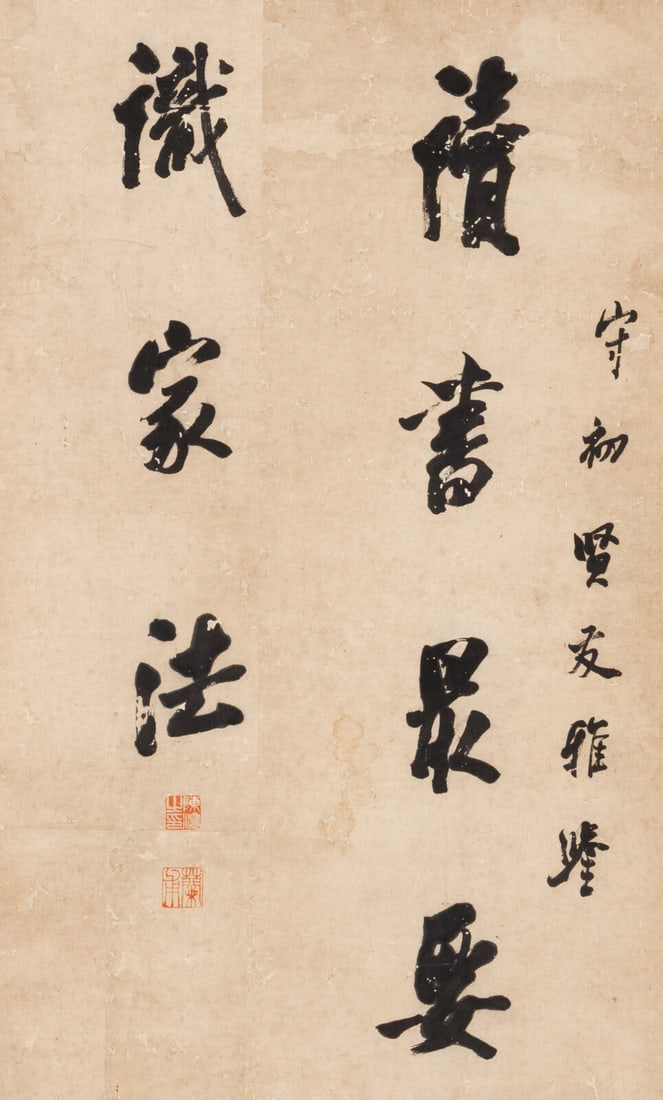 守初賢友雅鑒
讀書最要
識家法